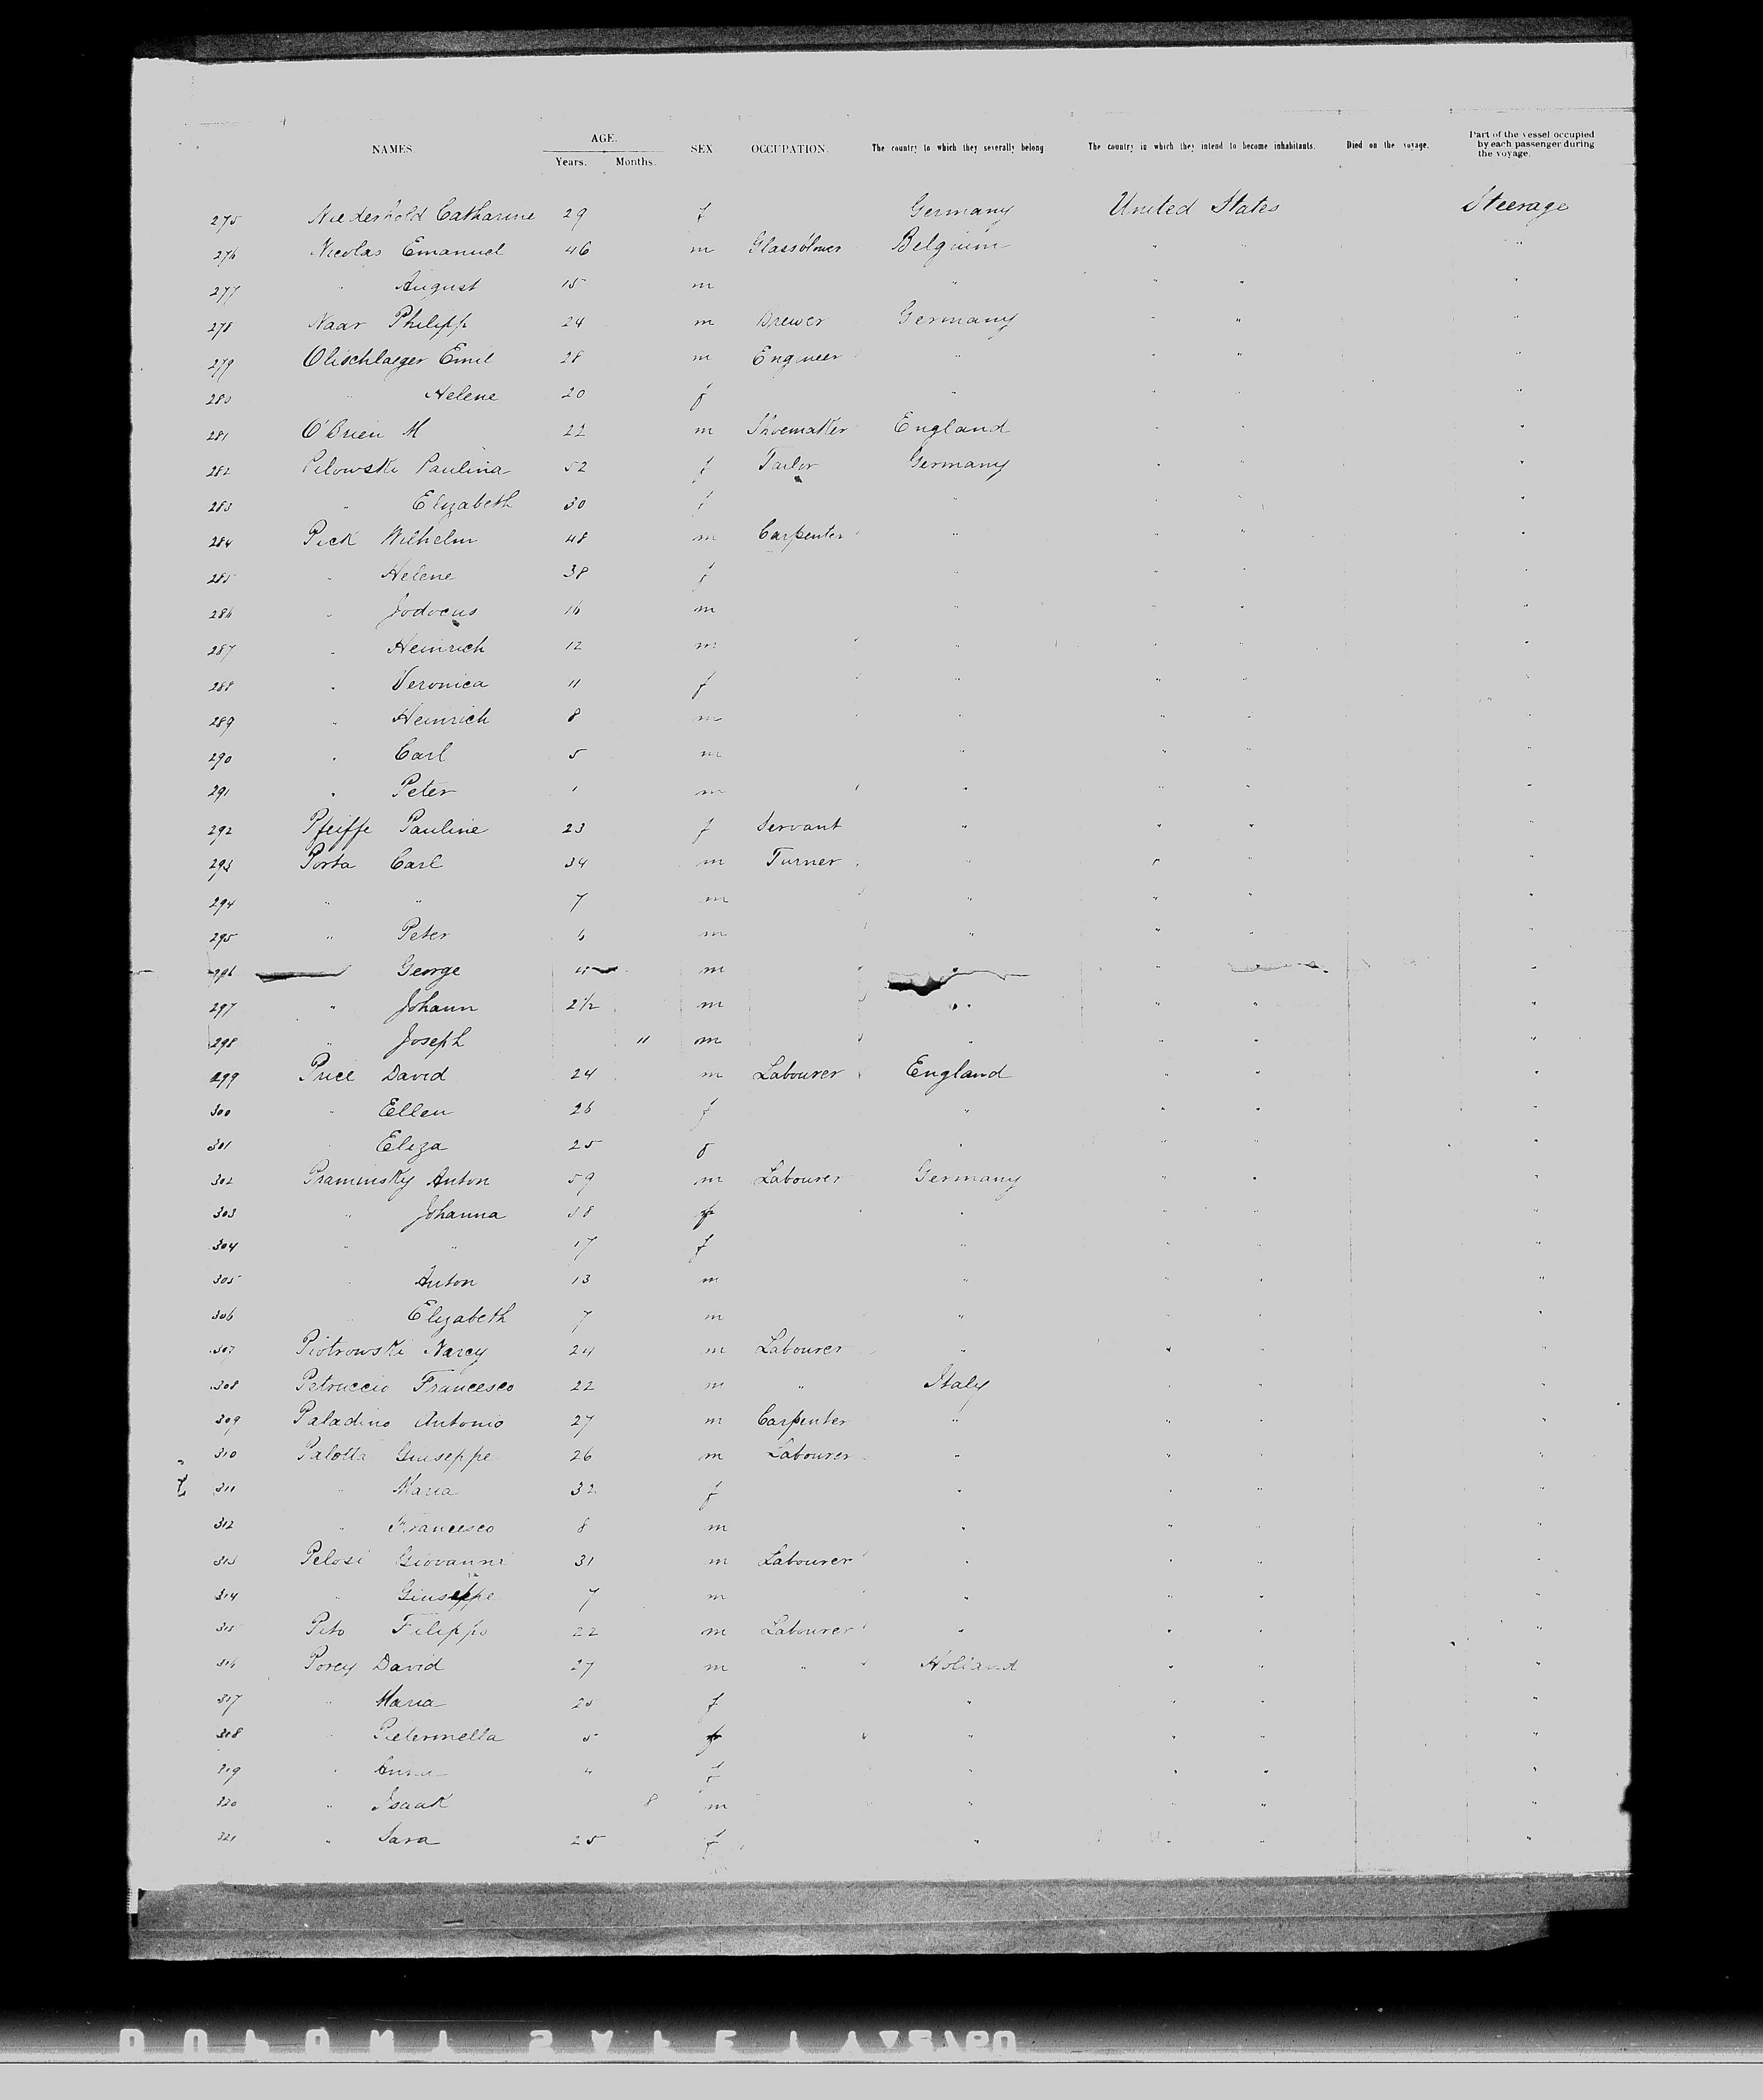 NAMES. AGE. SEX. OCCUPATION. The country to which they severally belong The country in which they intend to become inhabitants. Died on the voyage. Part of the vessel occupied by each passenger during the voyage.
Years. Months.
275 Niederhold Catharine 29 f Germany United States Steerage
276 Nicolas Emanuel 46 m Glassblower Belgium " " "
277 " August 15 m " " " "
278 Naar Philipp 24 m Brewer Germany " " "
279 Olischlaeger Emil 28 m Engineer " " " "
280 " Helene 20 f " " " "
281 O'Brien M 22 m Shoemaker England " " "
282 Pilowski Paulina 52 f Tailor Germany " " "
283 " Elizabeth 30 f " " " "
284 Pick Wilhelm 48 m Carpenter " " " "
285 " Helene 38 f " " " "
286 " Jodocus 16 m " " " "
287 " Heinrich 12 m " " " "
288 " Veronica 11 f " " " "
289 " Heinrich 8 m " " " "
290 " Carl 5 m " " " "
291 " Peter 1 m " " " "
292 Pfeiffe Pauline 23 f Servant " " " "
293 Porta Carl 34 m Turner " " " "
294 " " 7 m " " " "
295 " Peter 6 m " " " "
296 George m " " " "
297 " Johann 2 1/2 m " " " "
298 " Joseph 11 m " " " "
299 Price David 24 m Labourer England " " "
300 " Ellen 26 f " " " "
301 " Eliza 25 f " " " "
302 Praminsky Anton 59 m Labourer Germany " " "
303 " Johanna f " " " "
304 " " 17 f " " " "
305 " Anton 13 m " " " "
306 " Elizabeth 7 m " " " "
307 Piotrowski Narcy 24 m Labourer " " " "
308 Petruccio Francesco 22 m " Italy " " "
309 Paladino Antonio 27 m Carpenter " " " "
310 Palotta Giuseppe 26 m Labourer " " " "
311 " Maria 32 f " " " "
312 " Francesco 8 m " " " "
313 Pelosi Giovanni 31 m Labourer " " " "
314 " Giuseppe 7 m " " " "
315 Peto Filippo 22 m Labourer " " " "
316 Porey David 27 m " Holland " " "
317 " Maria 25 f " " " "
318 " Pieternella 5 f " " " "
319 " Anna 4 f " " " "
320 " Isaak 8 m " " " "
321 " Sara 25 f " " " "